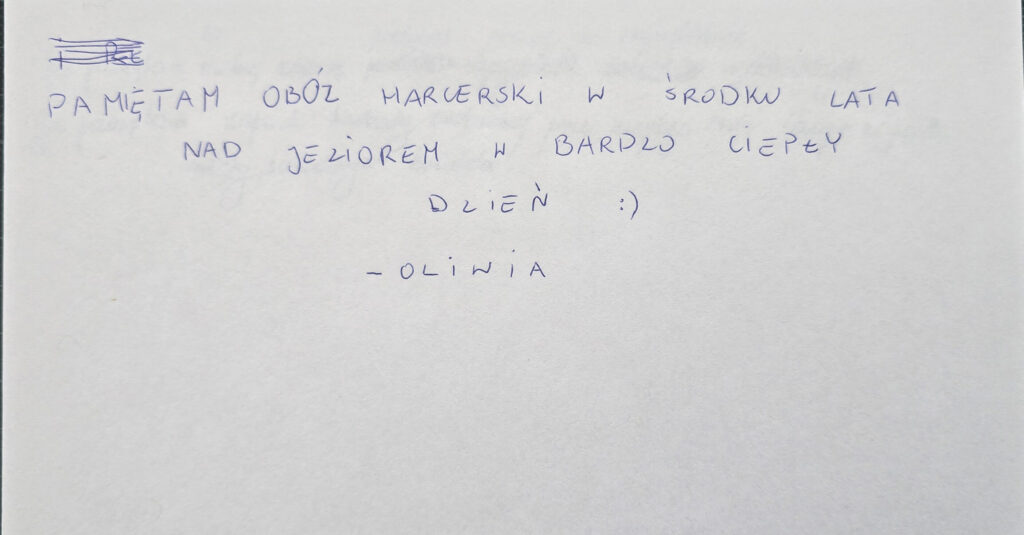 PAMIĘTAM OBÓZ HARCERSKI W ŚRODKU LATA
NAD JEZIOREM W BARDZO CIEPŁY
DZIEŃ :)
- OLIWIA